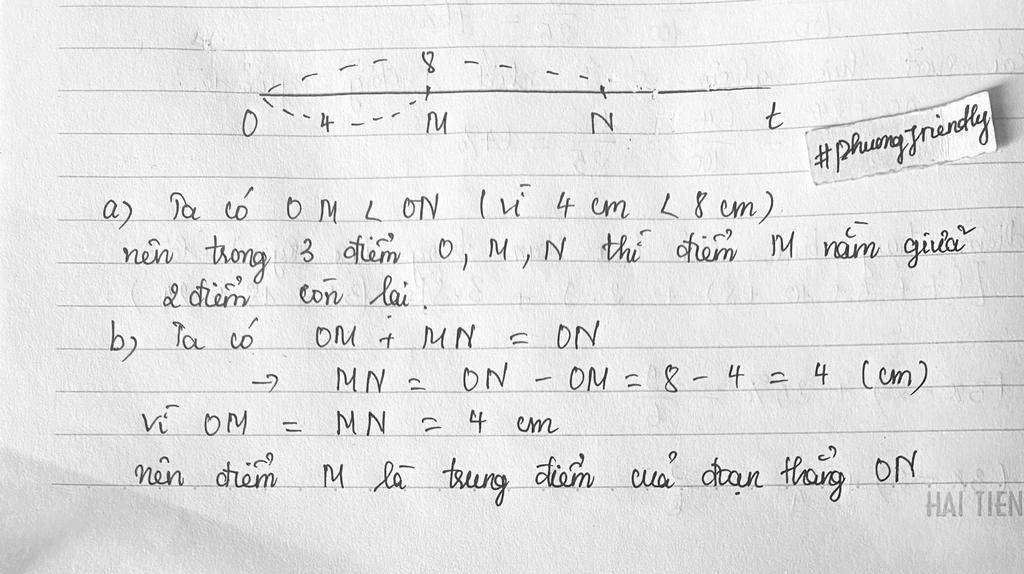 8
O 4 M N t
#phuongfriendly
a) Ta có OM < ON (vì 4 cm < 8 cm)
nên trong 3 điểm O, M, N thì điểm M nằm giữa
2 điểm còn lại.
b) Ta có OM + MN = ON
→ MN = ON - OM = 8 - 4 = 4 (cm)
vì OM = MN = 4 cm
nên điểm M là trung điểm của đoạn thẳng ON
HẢI TIẾN